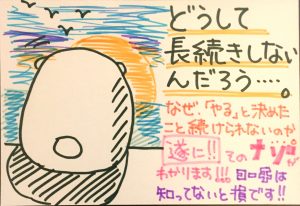 どうして
長続きしない
んだろう・・・・。
なぜ、「やる」と決めた
こと続けられないのか
遂に!! そのナゾが
わかります!!!
知ってないと損です!!